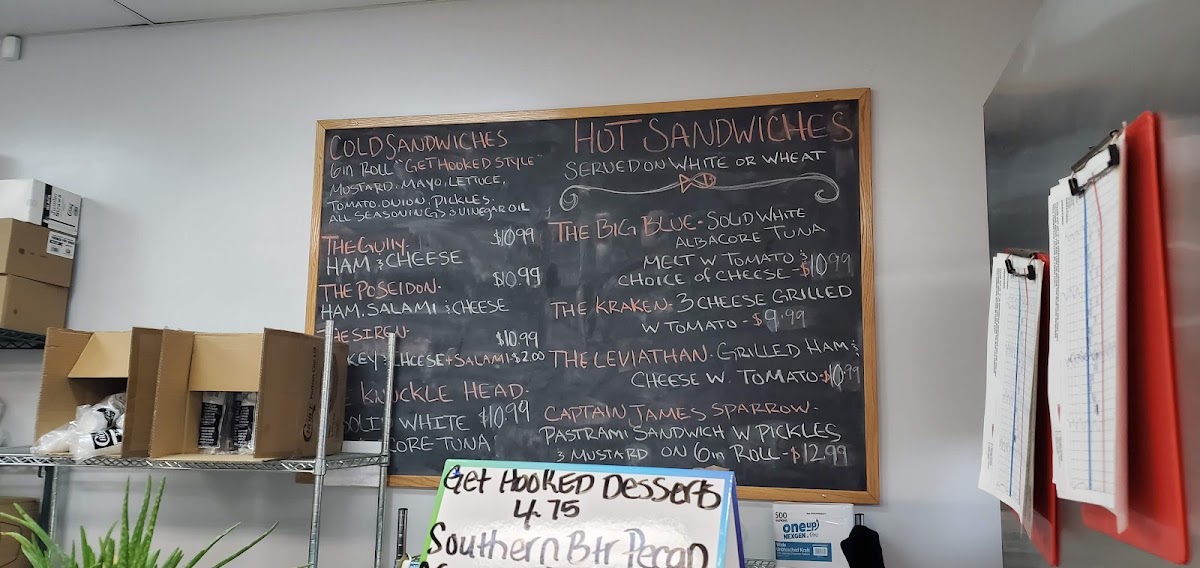 COLD SANDWICHES
6in ROLL "GET HOOKED STYLE"
MUSTARD, MAYO, LETTUCE,
TOMATO, ONION, PICKLES.
ALL SEASONINGS & VINEGAR OIL
THE GULLY- $10.99
HAM & CHEESE
THE POSEIDON- $10.99
HAM, SALAMI & CHEESE
SIREN- $10.99
CHEESE + SALAMI $2.00
KNUCKLE HEAD-
WHITE $10.99
TUNA
HOT SANDWICHES
SERVED ON WHITE OR WHEAT
THE BIG BLUE- SOLID WHITE
ALBACORE TUNA
MELT W TOMATO &
CHOICE OF CHEESE - $10.99
THE KRAKEN- 3 CHEESE GRILLED
W TOMATO - $9.99
THE LEVIATHAN- GRILLED HAM &
CHEESE W. TOMATO - $10.99
CAPTAIN JAMES SPARROW-
PASTRAMI SANDWICH W PICKLES
& MUSTARD ON 6in ROLL - $12.99
Get HOOKED Desserts
4.75
Southern Btr Pecan
500
oneup
NEXGEN